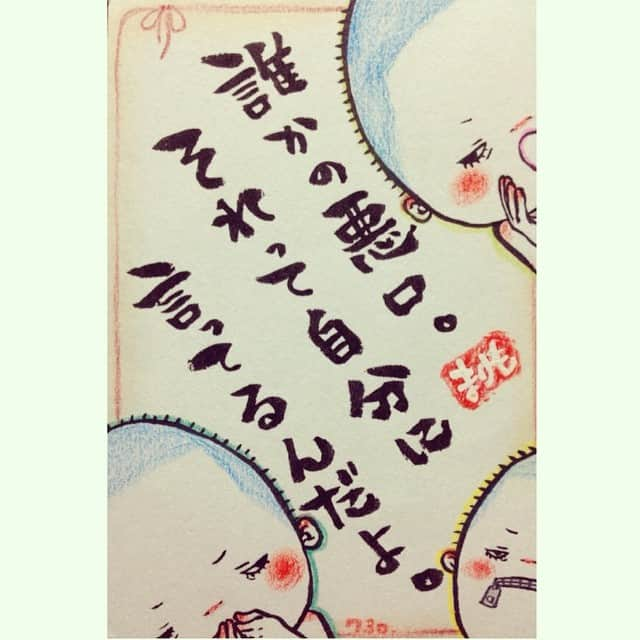 誰かの悪口。
それって自分に
言ってるんだよ。
730.